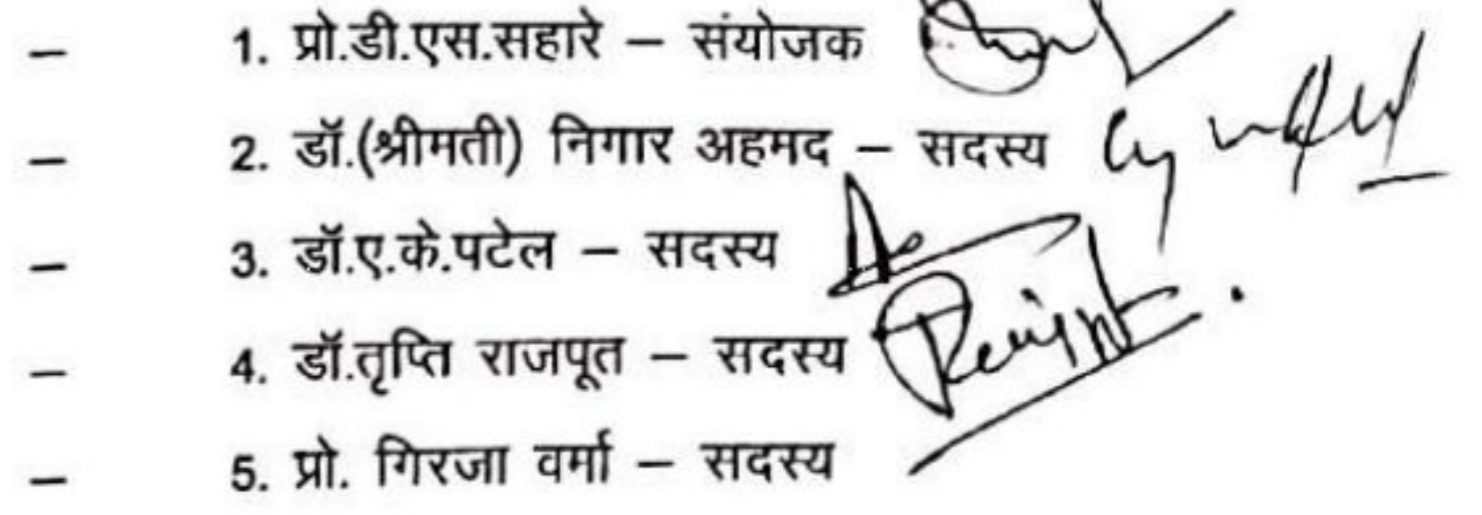 – 1. प्रो.डी.एस.सहारे – संयोजक
– 2. डॉ.(श्रीमती) निगार अहमद – सदस्य
– 3. डॉ.ए.के.पटेल – सदस्य
– 4. डॉ.तृप्ति राजपूत – सदस्य
– 5. प्रो. गिरजा वर्मा – सदस्य